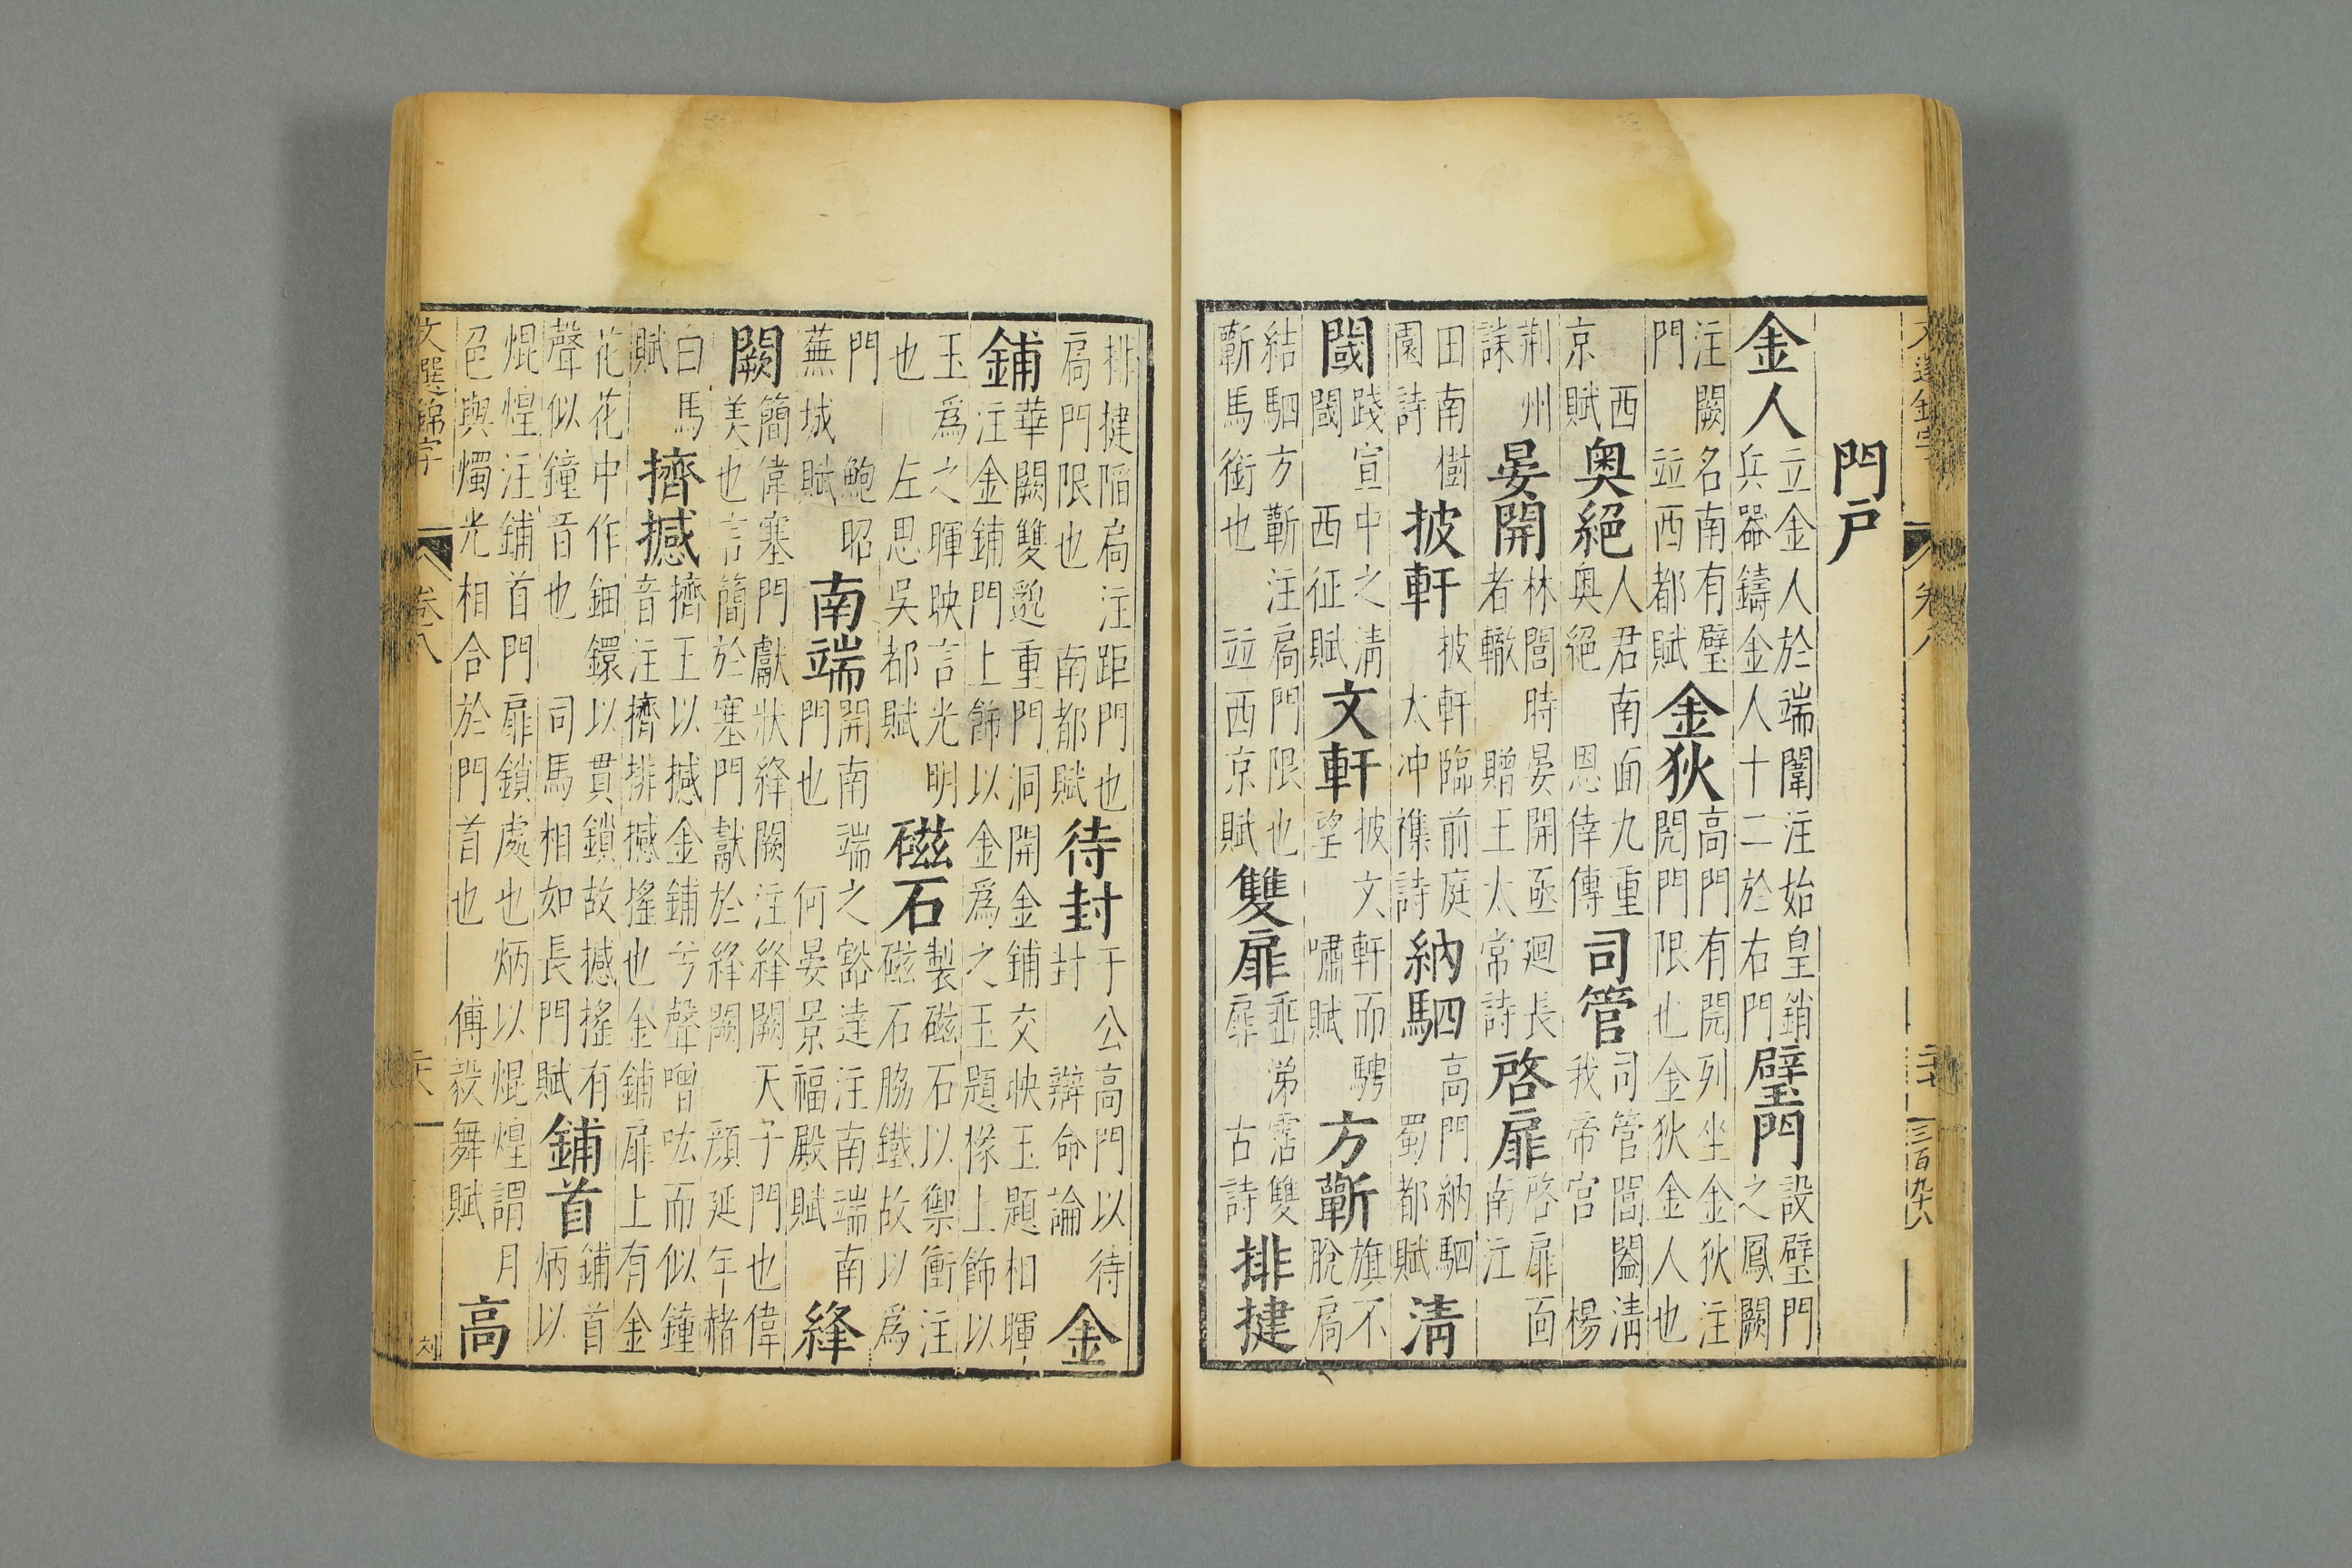 文選錦字 卷八 二十七 三百九十八
門戶
金人立金人於端闈注始皇銷兵器鑄金人十二於右門璧門設璧門之鳳闕
注闕名南有璧門 竝西都賦金狄高門有閌列坐金狄注閌門限也金狄金人也
西京賦奥絕人君南面九重奥絕 恩倖傳司管司管閶闔清我帝宫 楊
荊州誄晏開林閭時晏開亟廻長者轍 贈王太常詩啓扉啓扉面南江
田南樹園詩披軒披軒臨前庭 大冲襍詩納駟高門納駟 蜀都賦清
閾踐宣中之清閾 西征賦文軒披文軒而騁望 嘯賦方蘄旗不脫扃
結駟方蘄注扃門限也蘄馬銜也 竝西京賦雙扉垂涕霑雙扉 古詩排揵
排揵陷扃注距門也扃門限也 南都賦待封于公高門以待封 辯命論金
鋪華闕雙邈重門洞開金鋪交映玉題相暉注金鋪門上飾以金爲之玉題椽上飾以
玉爲之暉映言光明也 左思吳都賦磁石製磁石以禦衝注磁石脇鐵故以爲
門 鮑昭蕪城賦南端開南端之豁達注南端南門也 何晏景福殿賦絳
闕簡偉塞門獻狀絳闕注絳闕天子門也偉美也言簡於塞門獻於絳闕 顔延年赭
白馬賦擠撼擠玉以撼金鋪兮聲噌吰而似鍾音注擠擠排撼搖也金鋪扉上有金
花花中作鈿鐶以貫鎖故撼搖有聲似鐘音也 司馬相如長門賦鋪首鋪首炳以
焜煌注鋪首門扉鎖處也炳以焜煌謂月色與燭光相合於門首也 傅毅舞賦高
文選錦字 卷八 二十八 刘